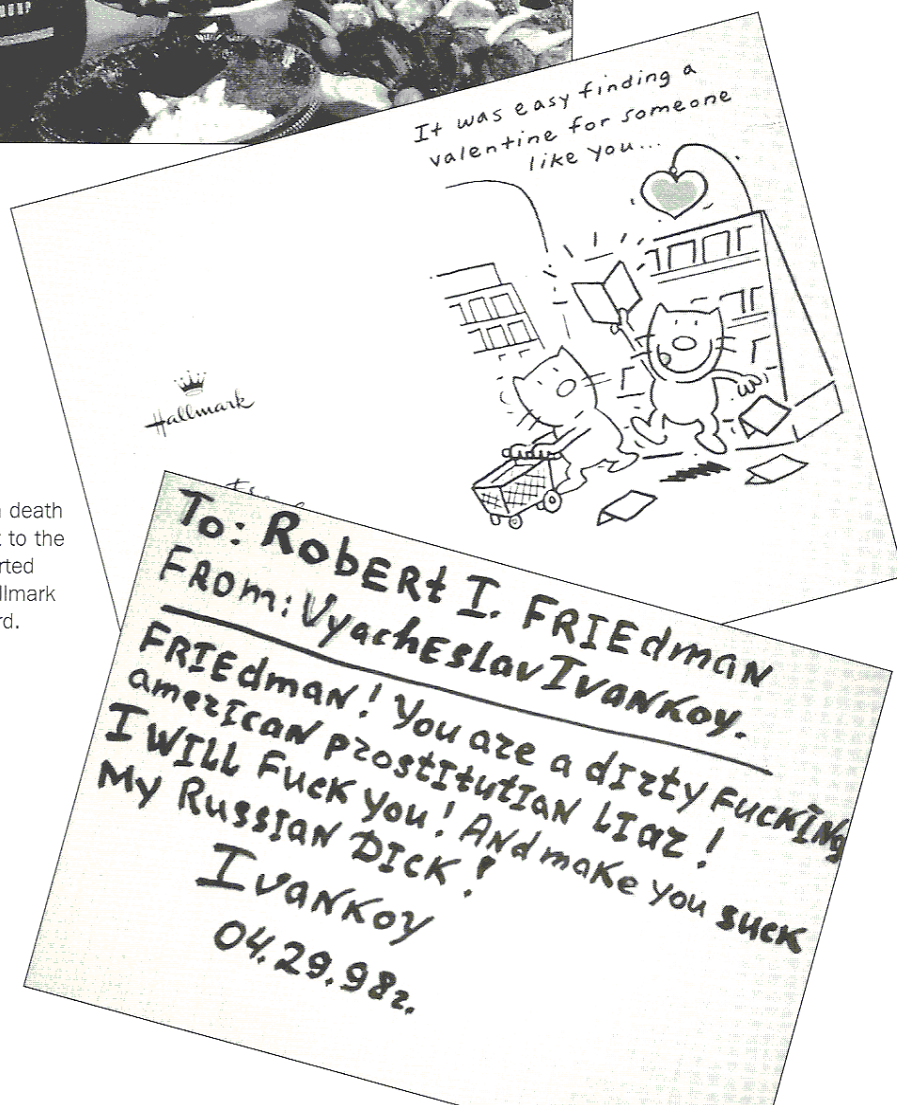 It was easy finding a
valentine for someone
like you...
Hallmark
death
to the
rd.
To: RobERt I. FRIEdmaN
FROm: VyachEslav IvaNkoy.
FRIEdmaN! You aze a dIzty FuckINg
amezIcaN pzostItutIaN LIaz!
I WILL Fuck you! ANd make you suck
My RussIaN DIck!
IvaNkoy
04.29.98г.